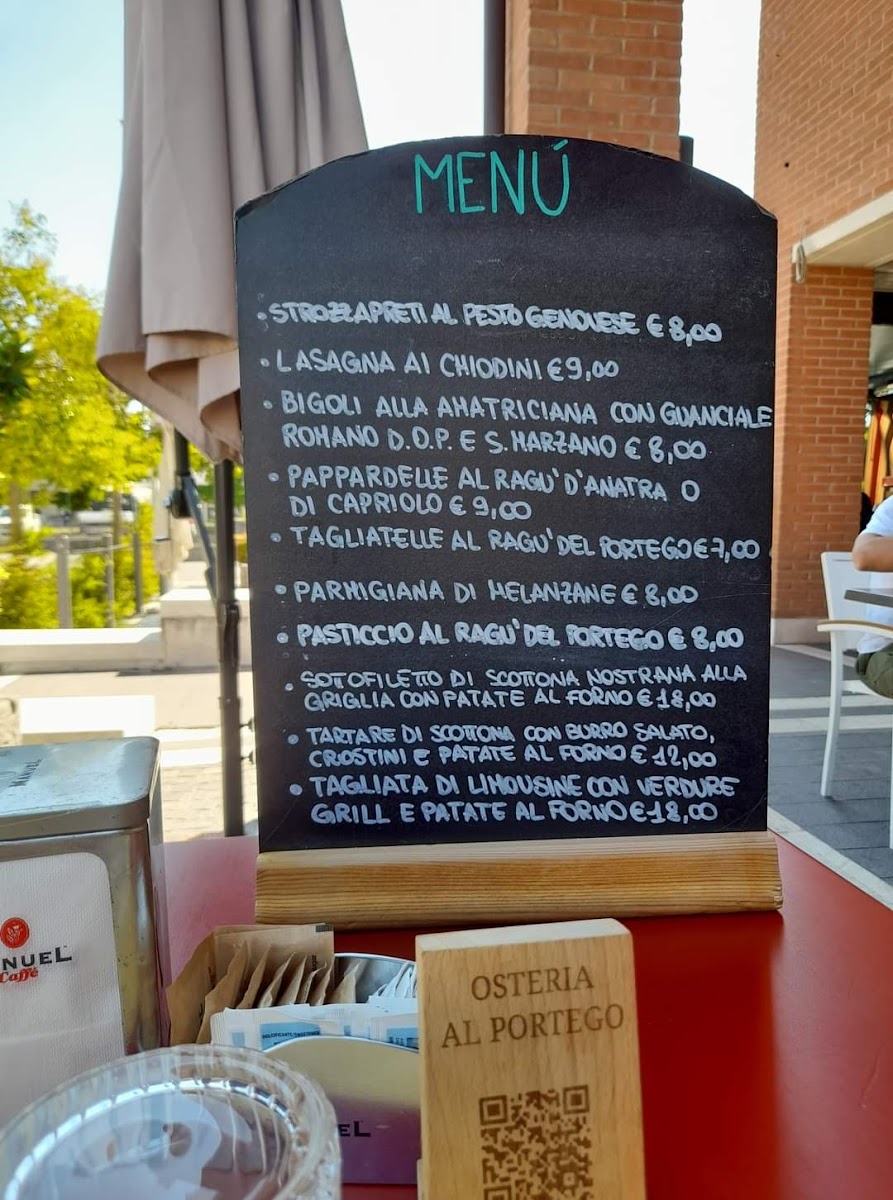 MENÚ
• STROZZAPRETI AL PESTO GENOVESE € 8,00
• LASAGNA AI CHIODINI € 9,00
• BIGOLI ALLA AMATRICIANA CON GUANCIALE
ROMANO D.O.P. E S. MARZANO € 8,00
• PAPPARDELLE AL RAGU' D'ANATRA O
DI CAPRIOLO € 9,00
• TAGLIATELLE AL RAGU' DEL PORTEGO € 7,00
• PARMIGIANA DI MELANZANE € 8,00
• PASTICCIO AL RAGU' DEL PORTEGO € 8,00
• SOTOFILETTO DI SCOTTONA NOSTRANA ALLA
GRIGLIA CON PATATE AL FORNO € 18,00
• TARTARE DI SCOTTONA CON BURRO SALATO,
CROSTINI E PATATE AL FORNO € 12,00
• TAGLIATA DI LIMOUSINE CON VERDURE
GRILL E PATATE AL FORNO € 18,00
MANUEL
NUEL
Caffè
OSTERIA
AL PORTEGO
EL